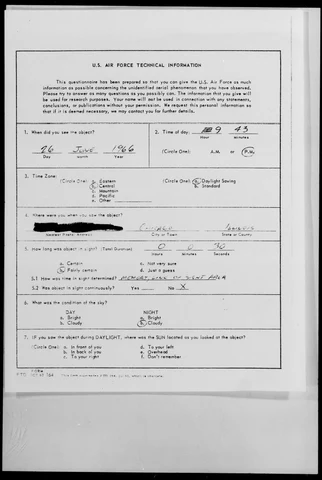 U.S. AIR FORCE TECHNICAL INFORMATION
This questionnaire has been prepared so that you can give the U.S. Air Force as much
information as possible concerning the unidentified aerial phenomenon that you have observed.
Please try to answer as many questions as you possibly can. The information that you give will
be used for research purposes. Your name will not be used in connection with any statements,
conclusions, or publications without your permission. We request this personal information so
that if it is deemed necessary, we may contact you for further details.
1. When did you see the object?
26 June 1966
Day Month Year
2. Time of day: 9 45
Hour Minutes
(Circle One): A.M. or P.M.
3. Time Zone:
(Circle One): a. Eastern
b. Central
c. Mountain
d. Pacific
e. Other
(Circle One): a. Daylight Saving
b. Standard
4. Where were you when you saw the object?
Nearest Postal Address City or Town State or County
5. How long was object in sight? (Total Duration) 0 0 30
Hours Minutes Seconds
a. Certain c. Not very sure
b. Fairly certain d. Just a guess
5.1 How was time in sight determined?
5.2 Was object in sight continuously? Yes No X
6. What was the condition of the sky?
DAY NIGHT
a. Bright a. Bright
b. Cloudy b. Cloudy
7. IF you saw the object during DAYLIGHT, where was the SUN located as you looked at the object?
(Circle One): a. In front of you d. To your left
b. In back of you e. Overhead
c. To your right f. Don't remember